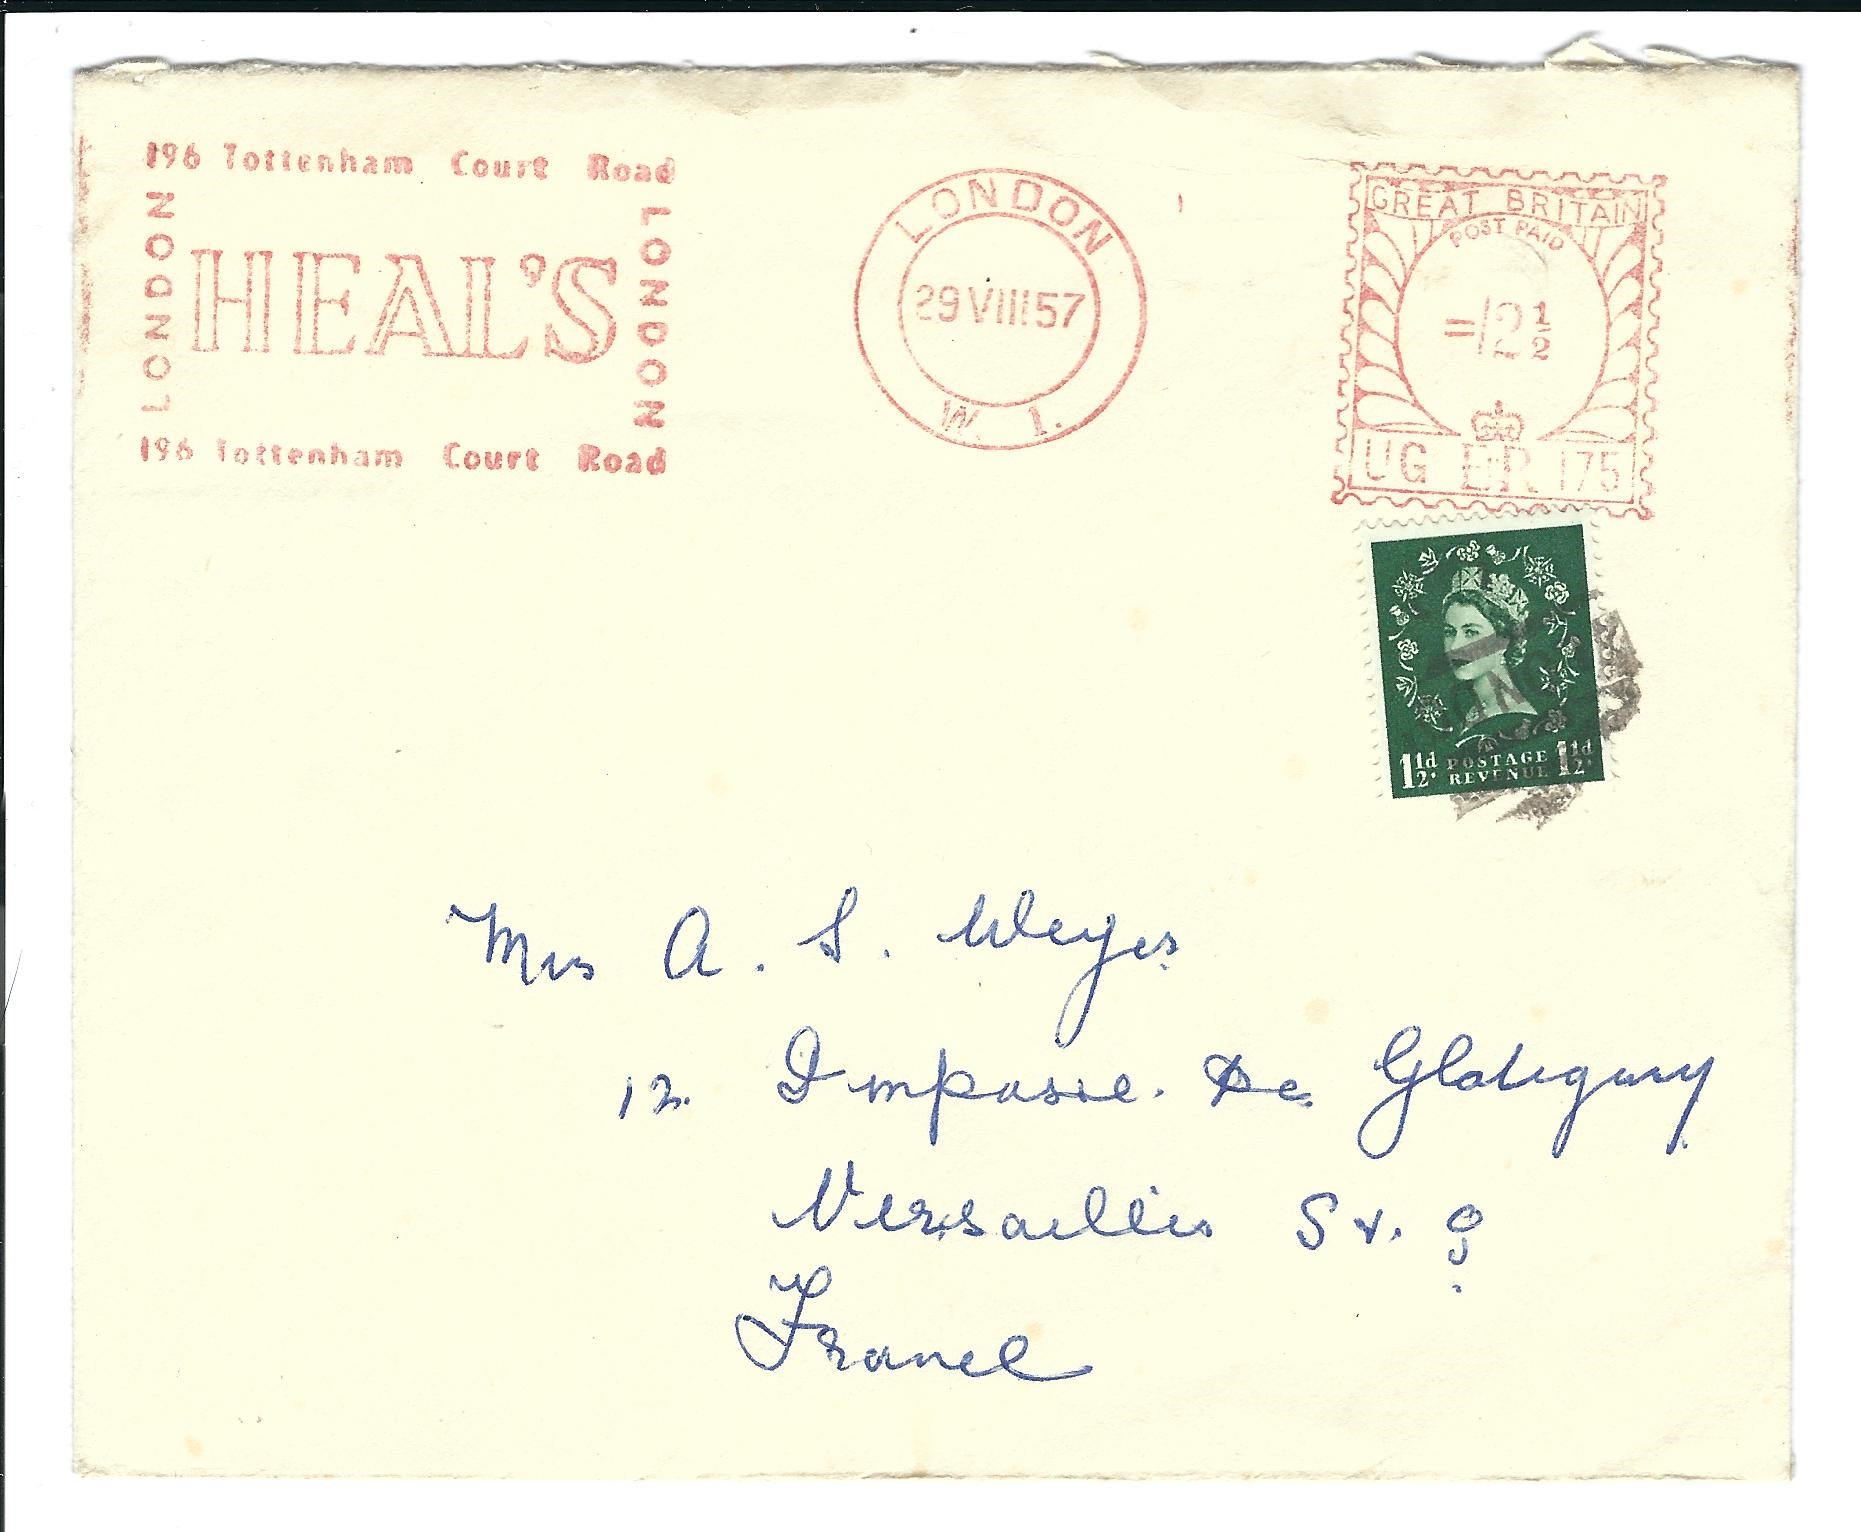 196 Tottenham Court Road
LONDON
HEAL'S
LONDON
196 Tottenham Court Road
LONDON
29 VIII 57
W. 1.
GREAT BRITAIN
POST PAID
=/2½
UG E II R 175
1½d POSTAGE REVENUE 1½d
Mrs A. S. Weyes
12. Impasse. De Glatigny
Versailles S &. O
France